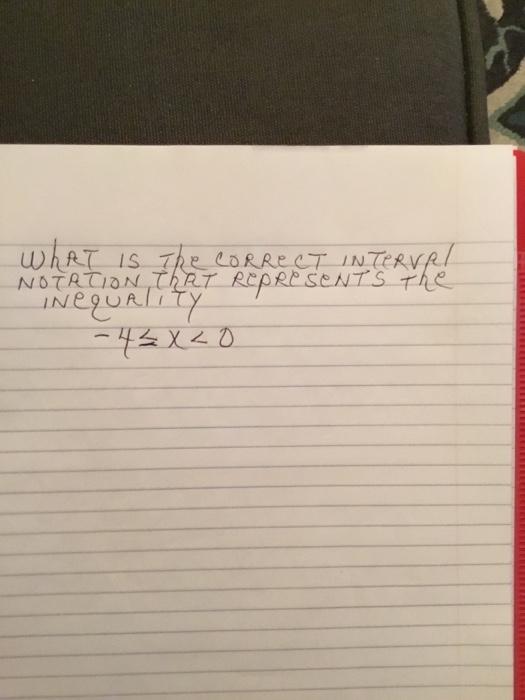 WhAT IS The CORRECT INTERVAl
NOTATION ThAT RepReseNTS The
INequAlITY
-4 ≤ X < 0